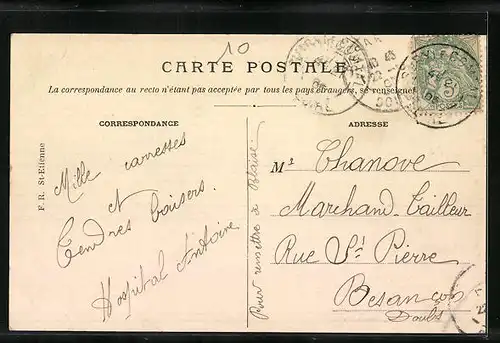 10
CARTE POSTALE
La correspondance au recto n'étant pas acceptée par tous les pays étrangers, se renseigner
CORRESPONDANCE
ADRESSE
F. R. St-Etiénne
Mille caresses
et
Tendres baisers.
Hospital Antoine
Pour remettre à Blaise
Mr Thanove
Marchand-Tailleur
Rue St Pierre
Besançon
Doubs